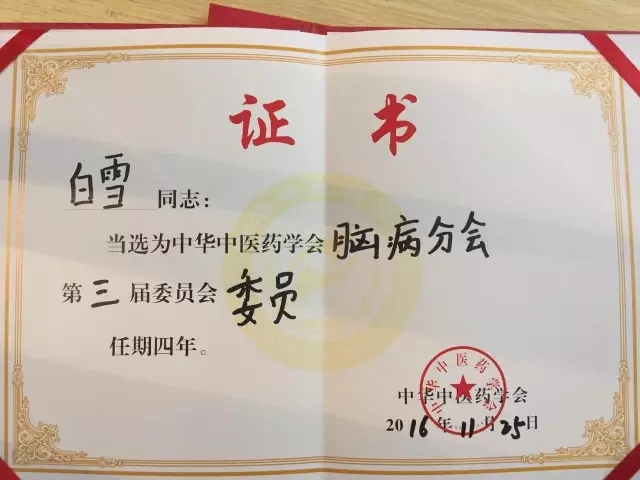 证书
白雪 同志：
当选为中华中医药学会脑病分会
第三届委员会委员
任期四年。
中华中医药学会
2016年11月25日
中华中医药学会